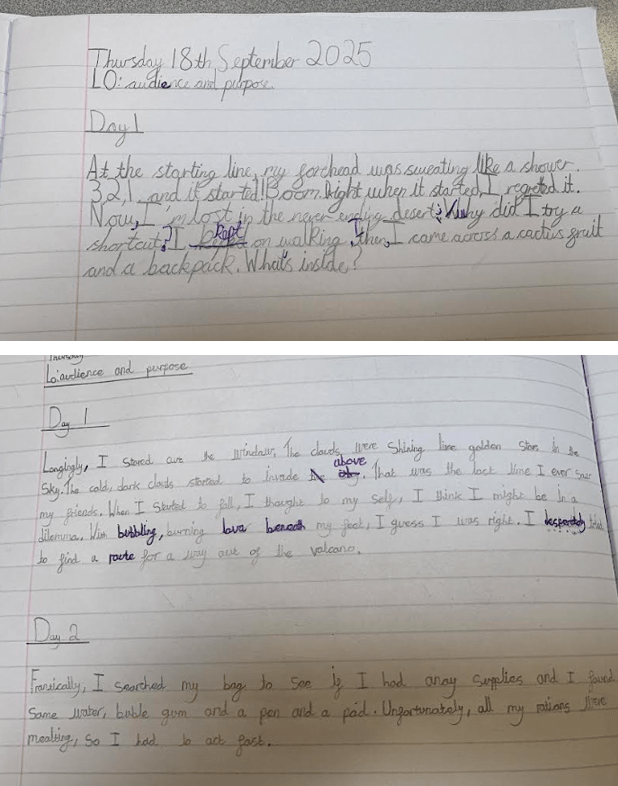 Thursday 18th September 2025
LO: audience and purpose
Day 1
At the starting line, my forehead was sweating like a shower.
3,2,1 and it started! Boom. Right when it started, I regreted it.
Now, I'm lost in the never ending desert; Why did I try a
shortcut? I kept on walking, then, I came across a cactus fruit
and a backpack. What's inside?
Thursday
Lo: audience and purpose
Day 1
Longingly, I stared out the window. The clouds were shining like golden stars in the
sky. The cold, dark clouds started to invade above. That was the last time I ever saw
my friends. When I started to fall, I thought to my self, I think I might be in a
dilemma. With bubbling, burning lava beneath my feet, I guess I was right. I desperately tried
to find a route for a way out of the volcano.
Day 2
Franically, I searched my bag to see if I had anay supplies and I found
some water, buble gum and a pen and a pad. Unfortunately, all my rations were
mealting, so I had to act fast.